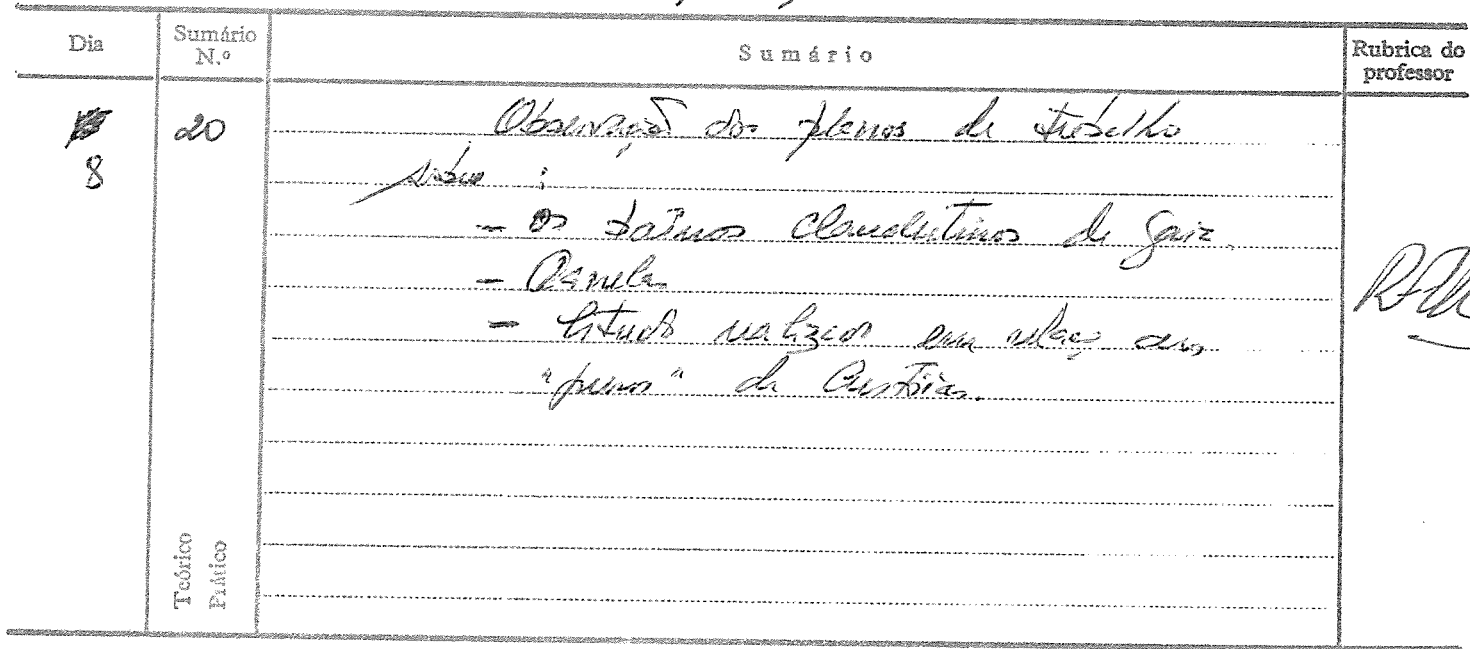 Dia
Sumário N.º
Sumário
Rubrica do professor
8
20
Observação dos planos de trabalho
sobre :
- os bairros clandestinos de Gaia.
- Canelas
- Estudo realizado em relação aos
" " da
Teórico
Prático